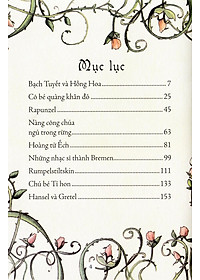 Mục lục
Bạch Tuyết và Hồng Hoa 7
Cô bé quàng khăn đỏ 25
Rapunzel 45
Nàng công chúa
ngủ trong rừng 63
Hoàng tử Ếch 81
Những nhạc sĩ thành Bremen 99
Rumpelstiltskin 111
Chú bé Tí hon 133
Hansel và Gretel 153